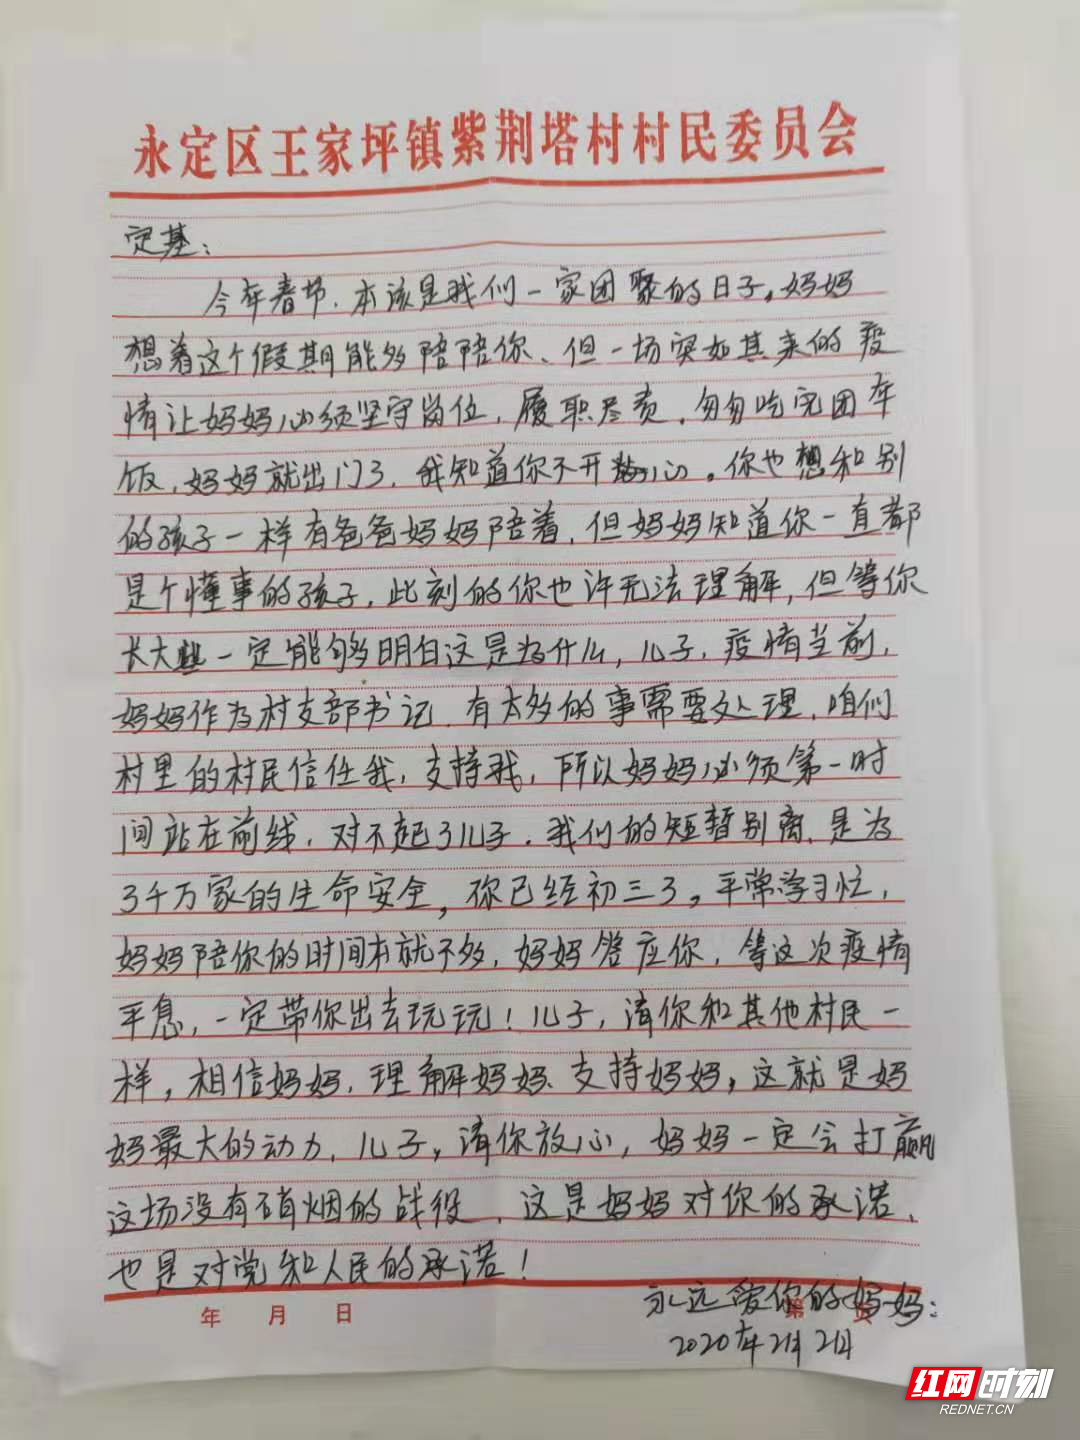 永定区王家坪镇紫荆塔村村民委员会
定基:
今年春节,本该是我们一家团聚的日子,妈妈
想着这个假期能多陪陪你、但一场突如其来的疫
情让妈妈必须坚守岗位,履职尽责,匆匆吃完团年
饭,妈妈就出门了,我知道你不开心。你也想和别
的孩子一样有爸爸妈妈陪着,但妈妈知道你一直都
是个懂事的孩子,此刻的你也许无法理解,但等你
长大些一定能够明白这是为什么,儿子,疫情当前,
妈妈作为村支部书记,有太多的事需要处理,咱们
村里的村民信任我,支持我,所以妈妈必须第一时
间站在前线,对不起了儿子,我们的短暂别离,是为
了千万家的生命安全,你已经初三了,平常学习忙,
妈妈陪你的时间本就不多,妈妈答应你,等这次疫情
平息,一定带你出去玩玩!儿子,请你和其他村民一
样,相信妈妈,理解妈妈、支持妈妈,这就是妈
妈最大的动力,儿子,请你放心,妈妈一定会打赢
这场没有硝烟的战役,这是妈妈对你的承诺,
也是对党和人民的承诺!
永远爱你的妈妈:
年 月 日 第 页
2020年2月2日
红网时刻
REDNET.CN